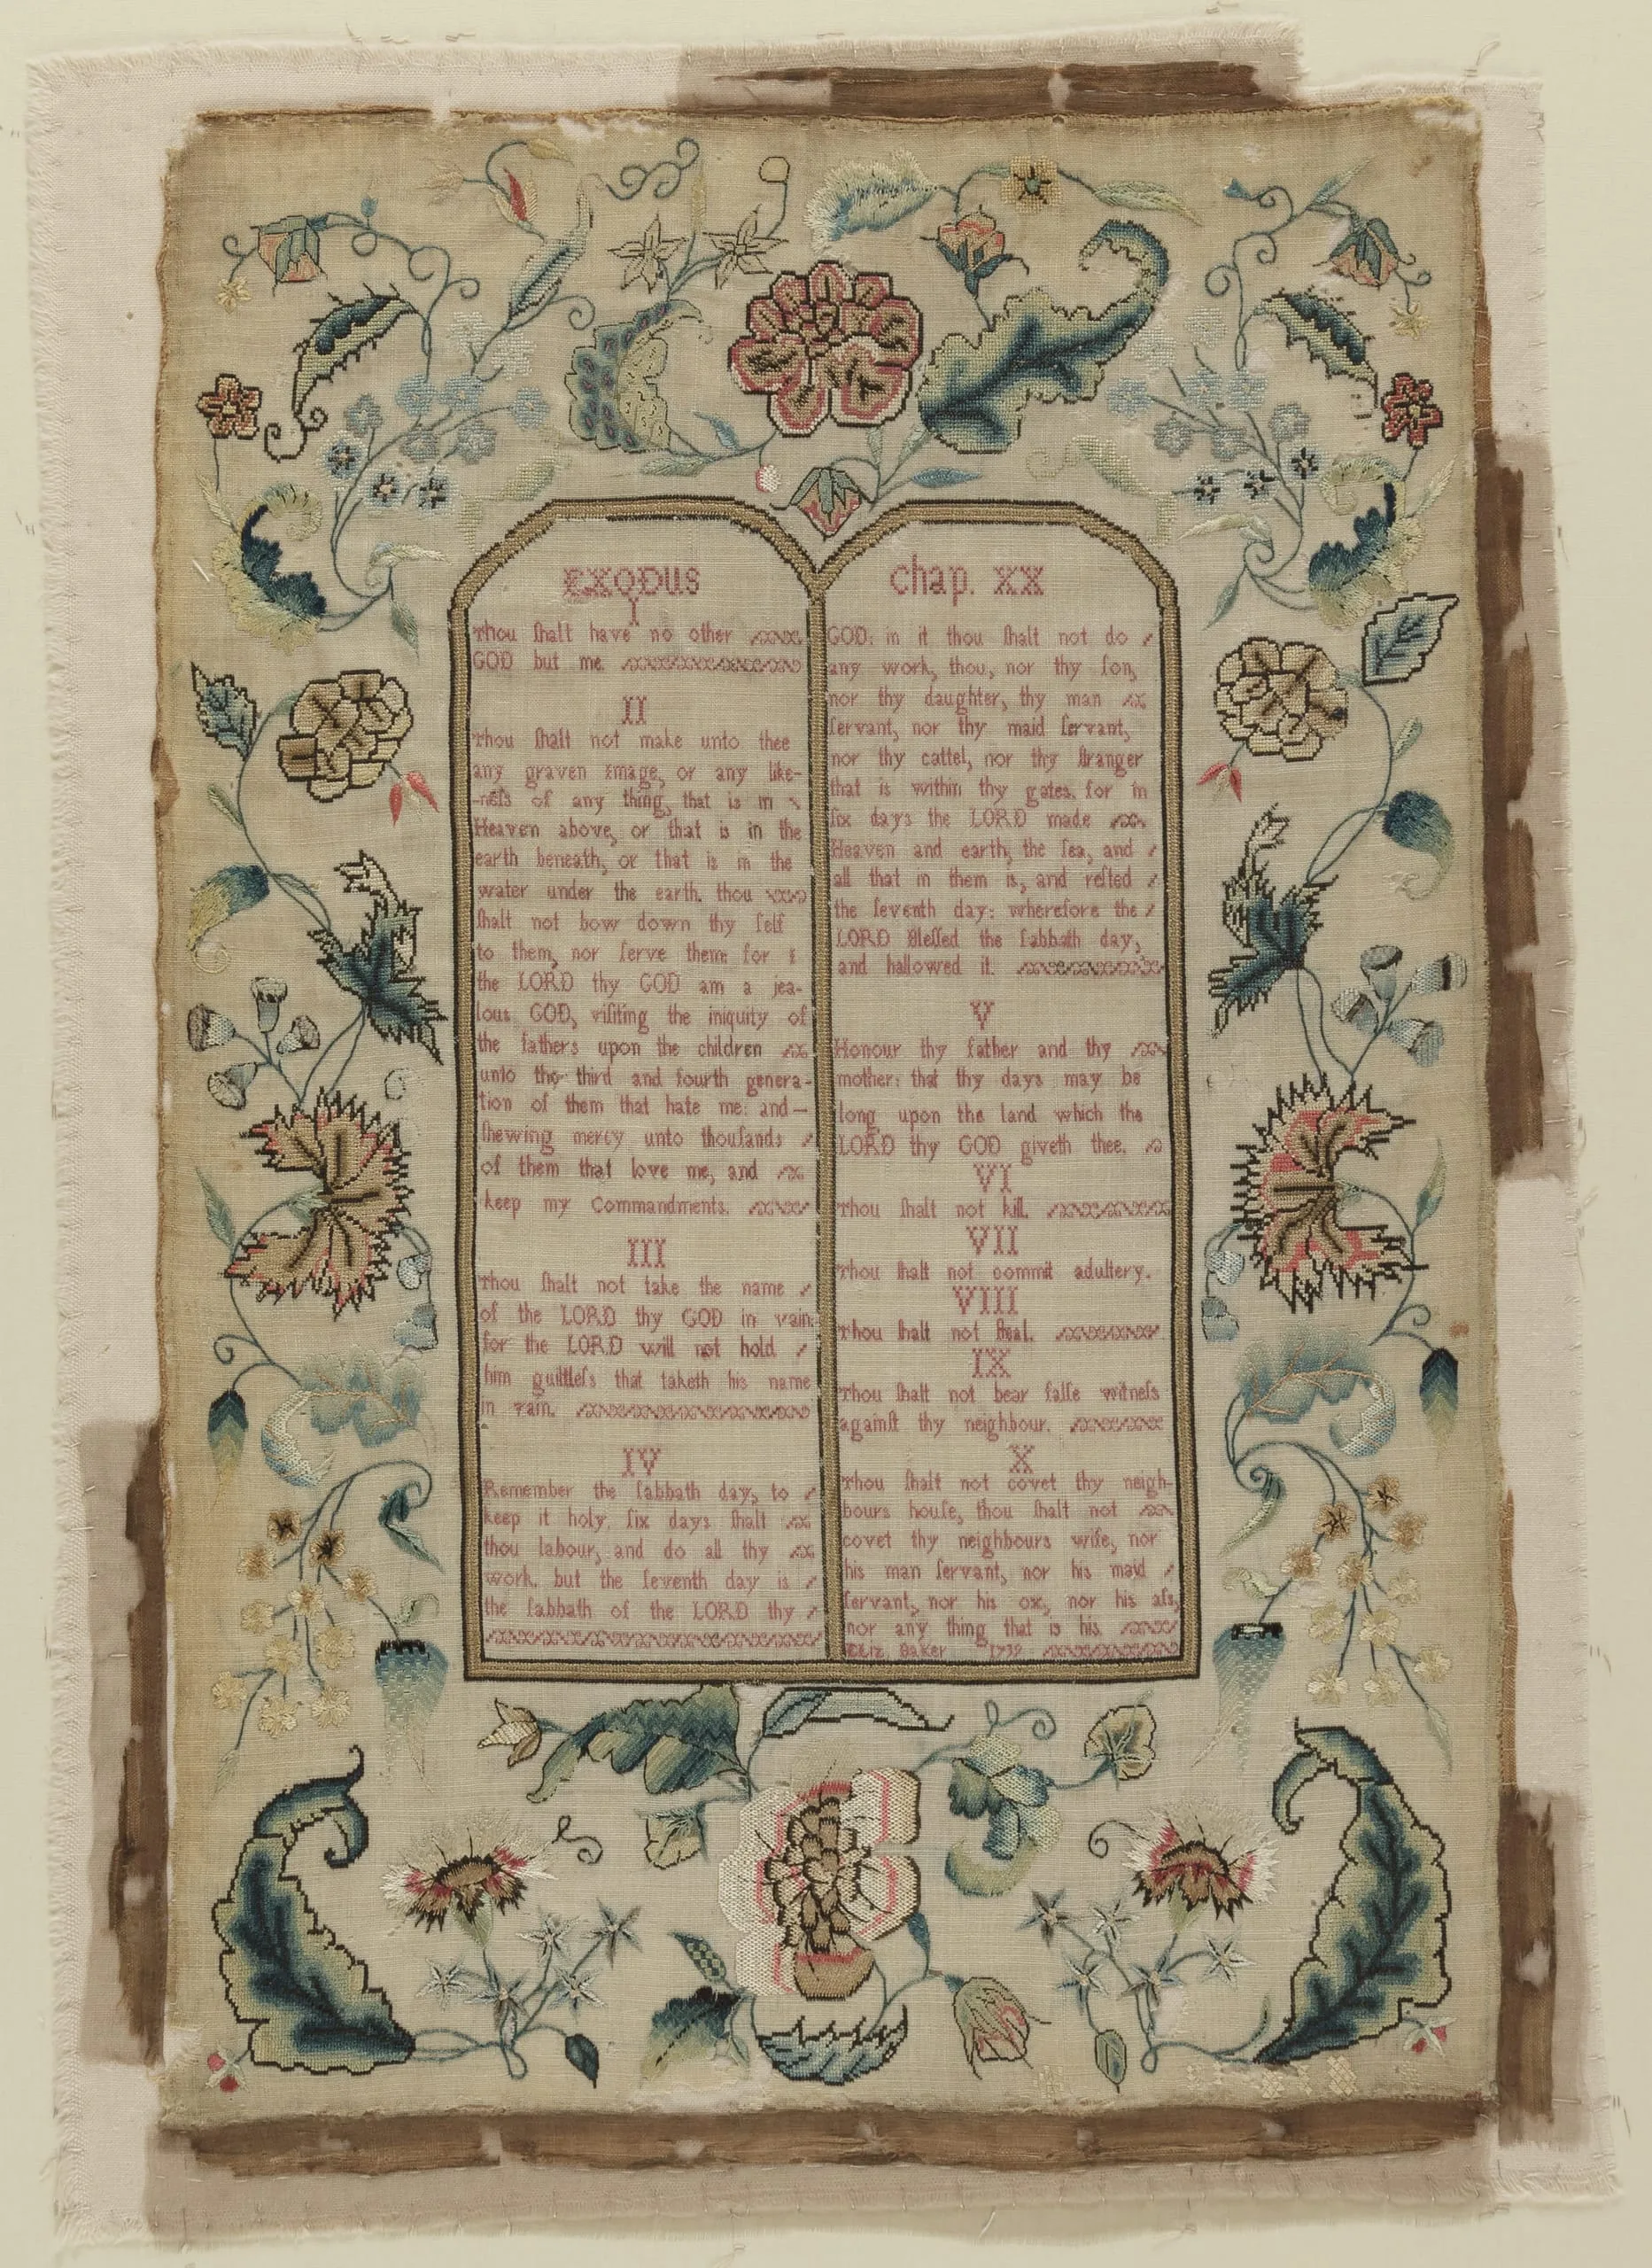 EXODUS
I
Thou ſhalt have no other
GOD but me.
II
Thou ſhalt not make unto thee
any graven image, or any like-
-neſs of any thing, that is in
Heaven above, or that is in the
earth beneath, or that is in the
water under the earth. thou
ſhalt not bow down thy ſelf
to them, nor ſerve them: for I
the LORD thy GOD am a jea-
lous GOD, viſiting the iniquity of
the fathers upon the children
unto the third and fourth genera-
tion of them that hate me: and—
ſhewing mercy unto thouſands
of them that love me, and
keep my Commandments.
III
Thou ſhalt not take the name
of the LORD thy GOD in vain:
for the LORD will not hold
him guiltleſs that taketh his name
in vain.
IV
Remember the ſabbath day, to
keep it holy. ſix days ſhalt
thou labour, and do all thy
work. but the ſeventh day is
the ſabbath of the LORD thy
chap. XX
GOD: in it thou ſhalt not do
any work, thou, nor thy ſon,
nor thy daughter, thy man
ſervant, nor thy maid ſervant,
nor thy cattel, nor thy ſtranger
that is within thy gates. for in
ſix days the LORD made
Heaven and earth, the ſea, and
all that in them is, and reſted
the ſeventh day: wherefore the
LORD Bleſſed the ſabbath day,
and hallowed it.
V
Honour thy father and thy
mother: that thy days may be
long upon the land which the
LORD thy GOD giveth thee.
VI
Thou ſhalt not kill.
VII
Thou ſhalt not commit adultery.
VIII
Thou ſhalt not ſteal.
IX
Thou ſhalt not bear falſe witneſs
againſt thy neighbour.
X
Thou ſhalt not covet thy neigh-
bours houſe, thou ſhalt not
covet thy neighbours wife, nor
his man ſervant, nor his maid
ſervant, nor his ox, nor his aſs,
nor any thing that is his.
Eliz Baker 1739